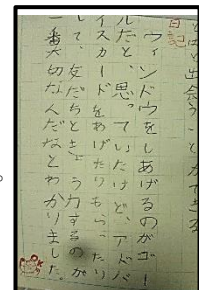 と出会うことができる
日記
ウィンドウをしあげるのがゴー
ルだと、思っていたけど、アドバ
イスカードをあげたりもらったり
して、友だちときょう力するのが
一番大切なんだなとわかりました。
OK